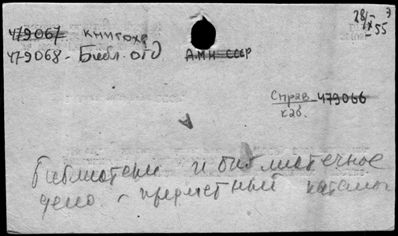 28/X-55 Э
479067 книгохр
479068 - Библ. отд АМН СССР
Справ 479066
каб.
Библиотеки и библиотечное
дело - предметный каталог